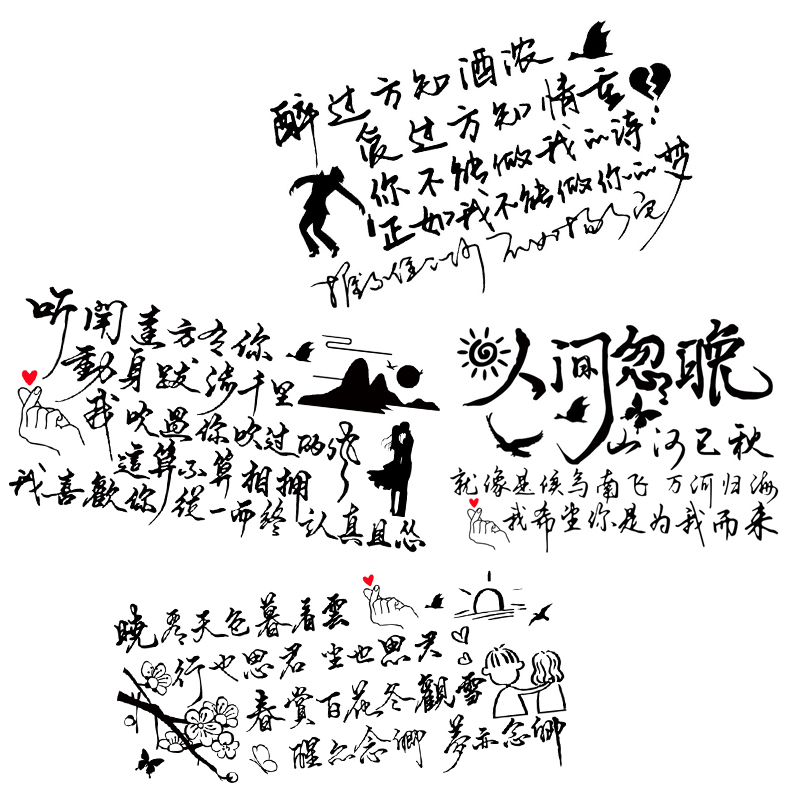 醉过方知酒浓
爱过方知情重
你不能做我的诗
正如我不能做你的梦
听闻远方有你
動身跋涉千里
我吹過你吹过的风
這算不算相拥
我喜歡你 從一而終 认真且怂
人间忽晚
山河已秋
就像是候鸟南飞 万河归海
我希望你是为我而来
晓看天色暮看雲
行也思君 坐也思君
春賞百花冬觀雪
醒亦念卿 夢亦念卿